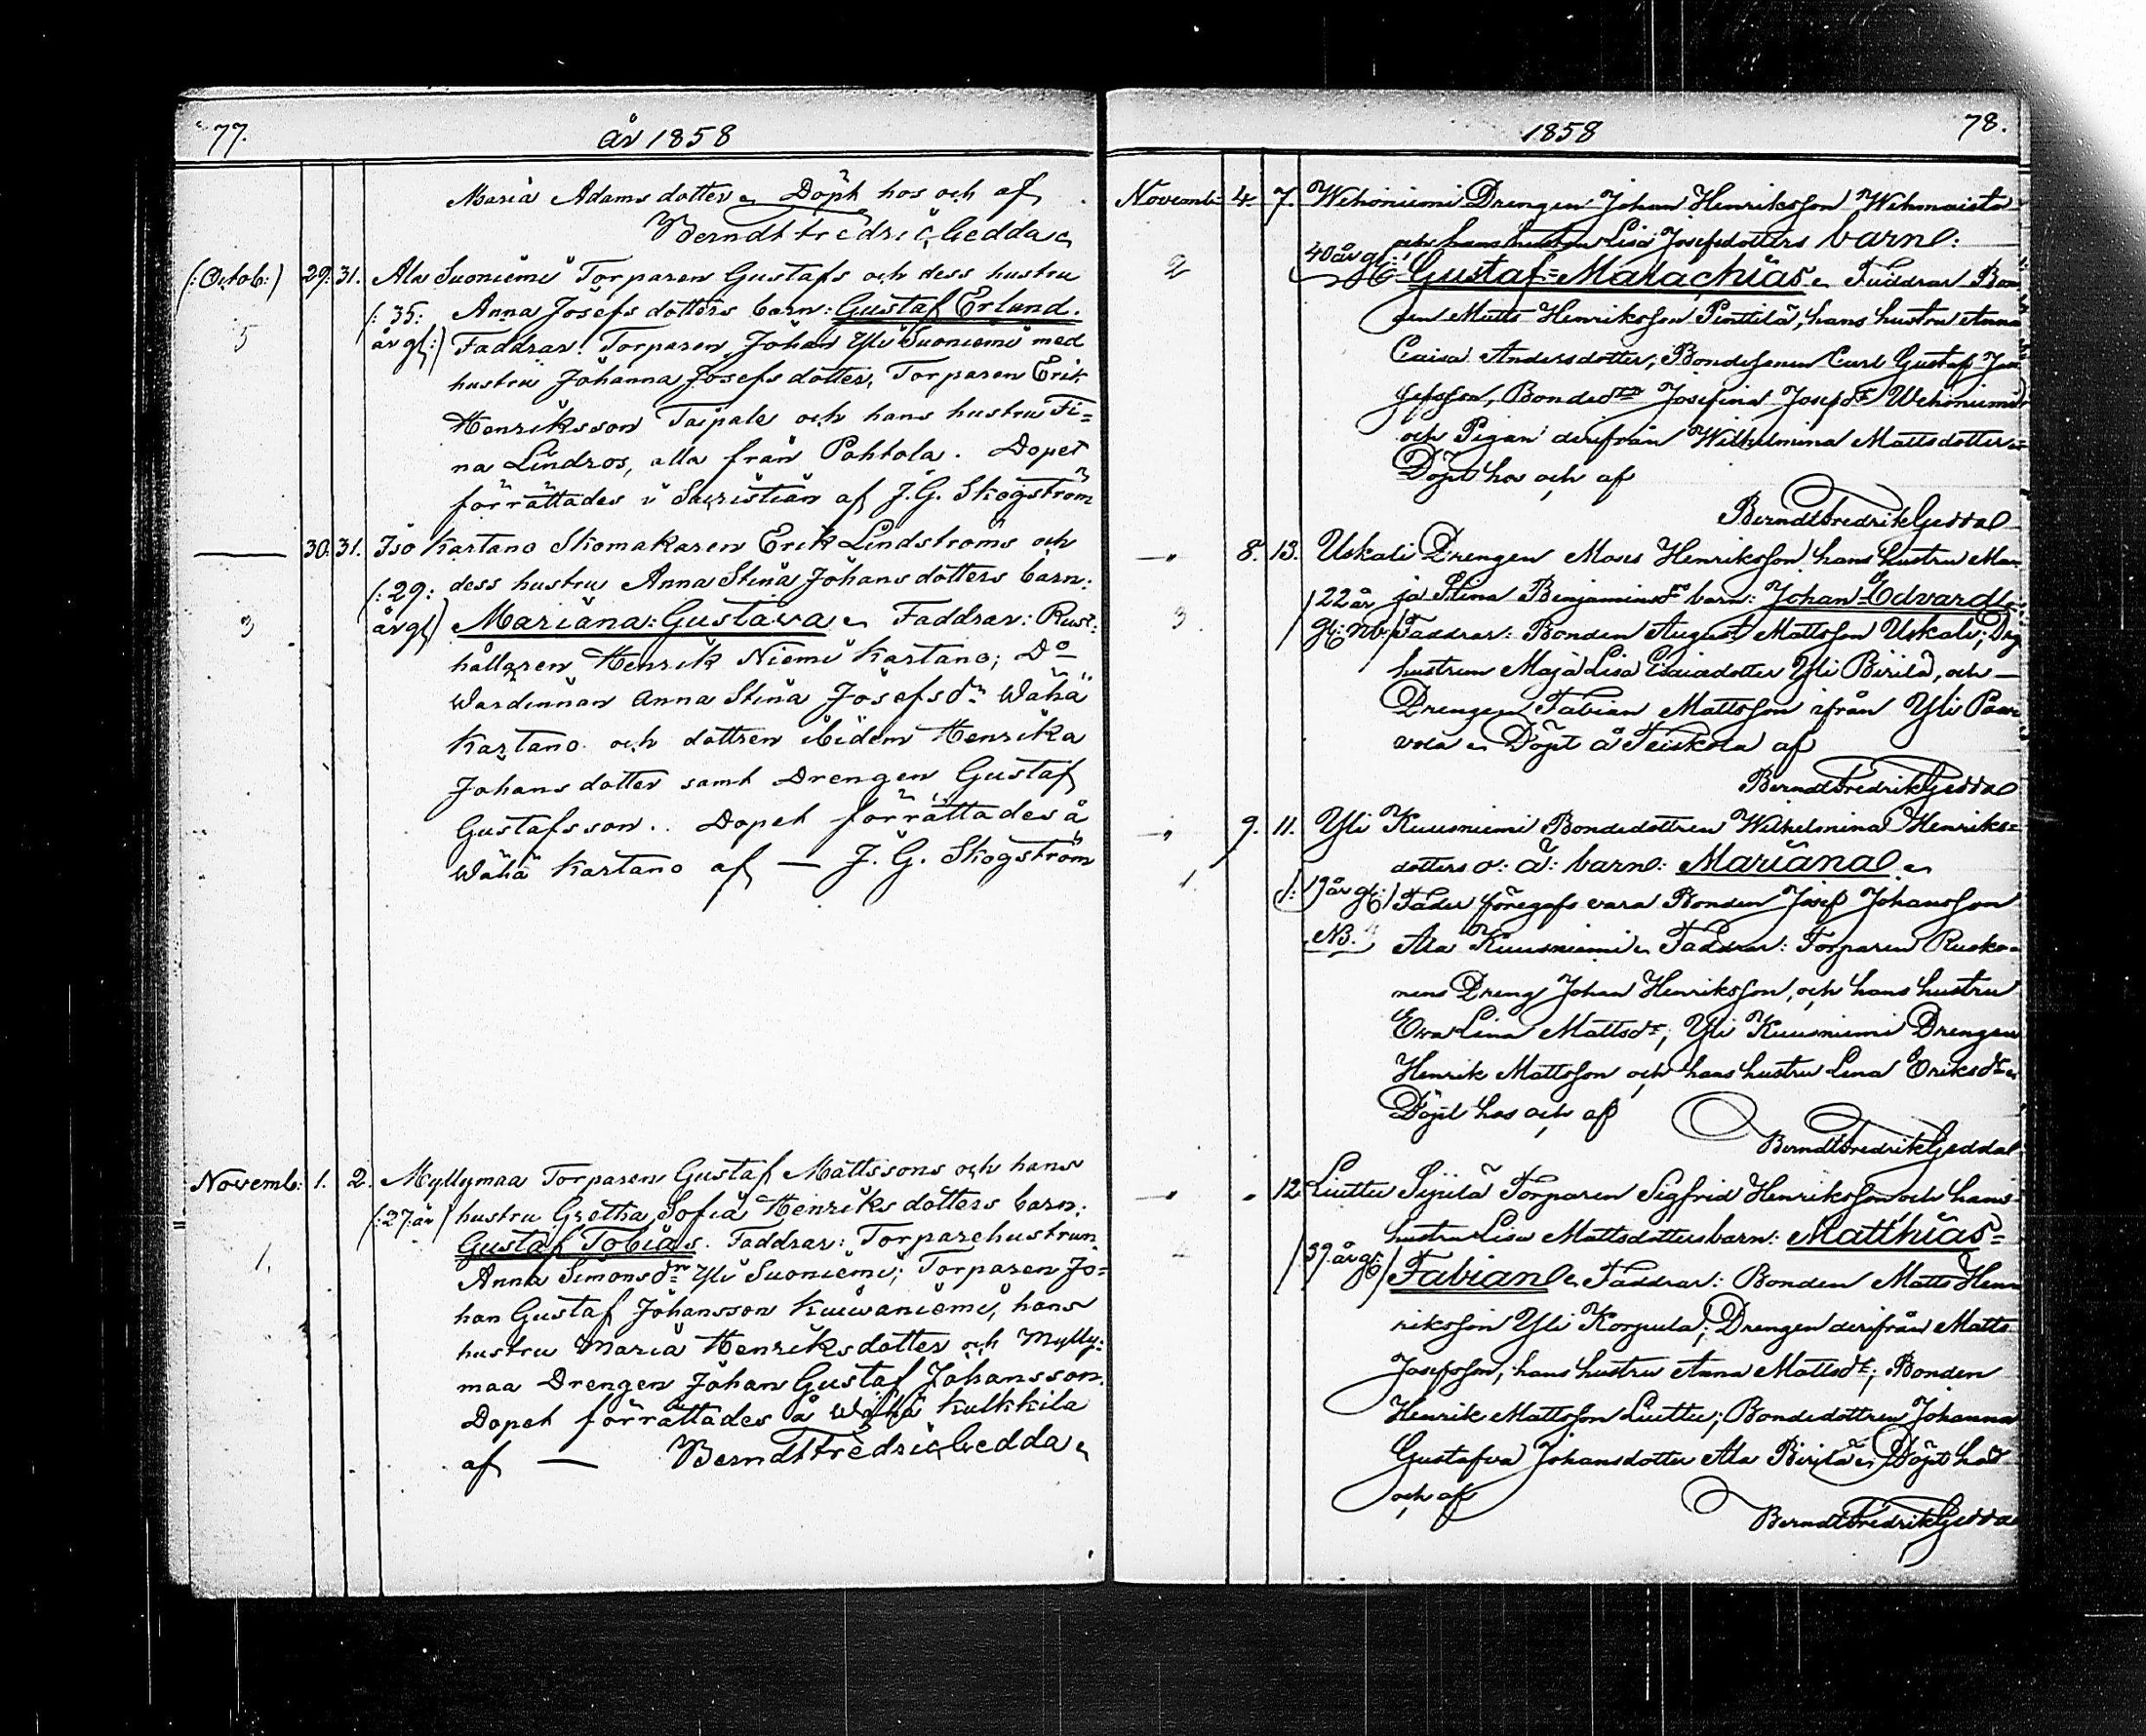 77.
år 1858
Maria Adamsdotter Döpt hos och af
Berndt Fredric Gedda
(: Octob :) 29. 31. Ala Suoniemi Torparen Gustafs och dess hustru
(: 35: Anna Josefsdotters barn: Gustaf Erlund.
5 år gl:) Faddrar: Torparen Johan Yli Suoniemi med
hustru Johanna Josefsdotter, Torparen Erik
Henriksson Taipale och hans hustru Fi=
na Lindros, alla från Pohtola. Dopet
förrättades i Sacristian af J. G. Skogström
30. 31. Iso Kartano Skomakaren Erik Lindströms och
(: 29: dess hustru Anna Stina Johansdotters barn:
3 år gl) Mariana: Gustava Faddrar: Rust:
hållaren Henrik Niemi Kartano; Do
Wärdinnan Anna Stina Josefsdr Wähä
Kartano och dottren ibidem Henrika
Johansdotter samt Drengen Gustaf
Gustafsson.. Dopet förrättades å
Wähä Kartano af — J. G. Skogström
Novemb: 1. 2. Myllymaa Torparen Gustaf Mattssons och hans
(: 27: år) hustru Gretha Sofia Henriksdotters barn:
1. Gustaf Tobias. Faddrar: Torparehustrun
Anna Simonsdr Yli Suoniemi; Torparen Jo=
han Gustaf Johansson Kuiwaniemi, hans
hustru Maria Henriksdotter och Mylly:
maa Drengen Johan Gustaf Johansson.
Dopet förrättades å Wähä Kulkkila
af — Berndt Fredric Gedda
1858
78.
Novemb: 4. 7. Wehoniemi Drengen Johan Henriksson Wehmaisto
och hans hustru Lisa Josefsdotters barn:
2 40 år gl: Gustaf=Malachias Faddrar Bon
den Matts Henriksson Penttilä, hans hustru Anna
Caisa Andersdotter; Bondesonen Carl Gustaf Jo
sefsson, Bondedtr Josefina Josefdr Wehoniemi
och Pigan derifrån Wilhelmina Mattsdotter
Döpt hos och af
Berndt Fredrik Gedda
8. 13. Uskali Drengen Moses Henriksson hans hustru Ma
22 år ja Stina Benjaminsdrs barn: Johan Edvard
3. gl: NB: Faddrar: Bonden August Mattsson Uskali; Drg
hustrun Maja Lisa Esaiædotter Yli Birilä, och —
Drengen Fabian Mattsson ifrån Yli Paa
vola Döpt å Teiskola af
Berndt Fredrik Gedda
9. 11. Yli Kuusniemi Bondedottren Wilhelmina Henriks=
dotters o: ä: barn: Mariana
1. (: 19 år gl:) Fader föregafs vara Bonden Josef Johansson
NB. Ala Kuusniemi Faddrar: Torparen Rusko=
nens Dreng Johan Henriksson, och hans hustru
Eva Lina Mattsdr; Yli Kuusniemi Drengen
Henrik Mattsson och hans hustru Lena Eriksdr
Döpt hos och af
Berndt Fredrik Gedda
12 Liuttu Sipilä Torparen Sigfrid Henriksson och hans
hustru Lisa Mattsdotters barn: Matthias=
39 år gl: Fabian Faddrar: Bonden Matts Hen
riksson Yli Korpula; Drengen derifrån Matts
Josefsson, hans hustru Anna Mattsdr; Bonden
Henrik Mattsson Liuttu; Bondedottren Johanna
Gustafva Johansdotter Ala Birilä Döpt hos
och af
Berndt Fredrik Gedda